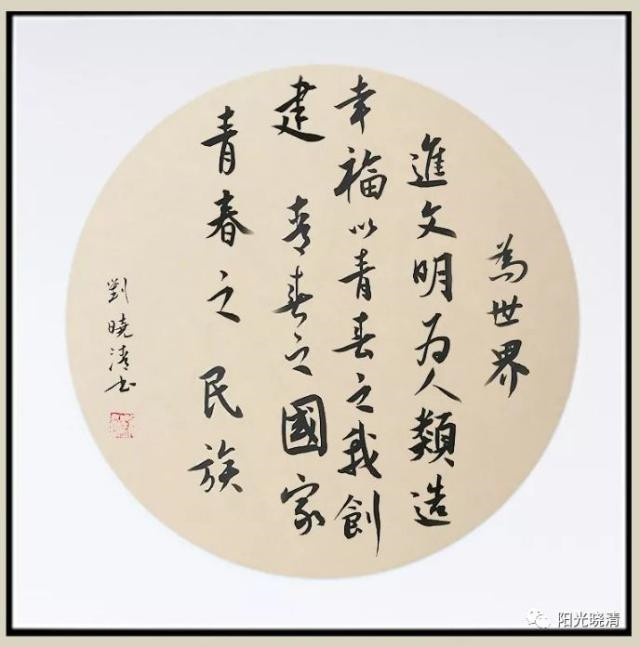 為世界
進文明為人類造
幸福以青春之我創
建青春之國家
青春之民族
劉曉清书
阳光晓清